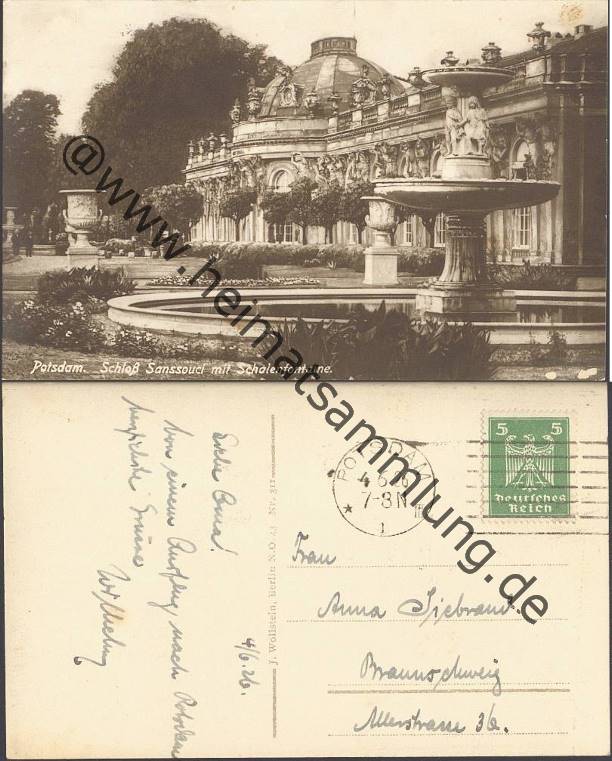 @www.heimatsammlung.de
Potsdam. Schloß Sanssouci mit Schalenfontaine.
Liebe Oma!
Von einem Ausflug nach Potsdam
herzlichste Grüsse
4/6.26.
J. Wollstein, Berlin N.O. 43 Nr. 311
POTSDAM
4.6.26
7-8N
1
5 5
Deutsches
Reich
Frau
Anna Siebrand.
Braunschweig
Allerstrasse 36.